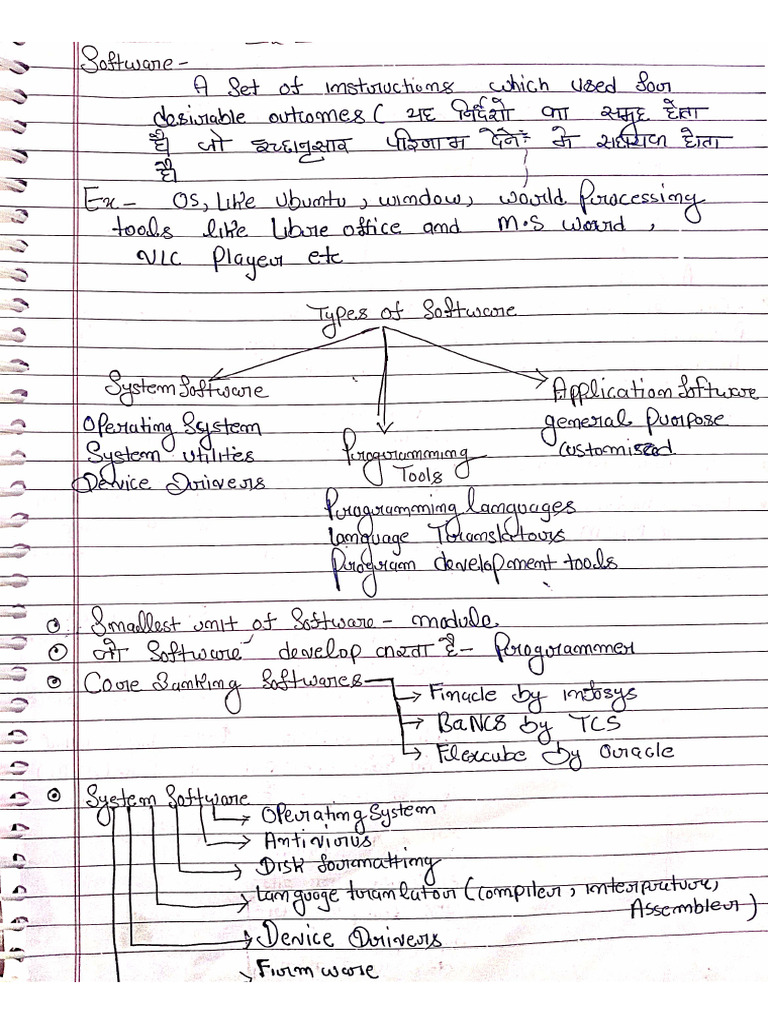 Software -
A Set of instructions which used for
desirable outcomes ( यह निर्देशो का समूह होता
है जो इच्छानुसार परिणाम देने में सहायक होता
है।
Ex - OS, Like Ubuntu, window, world Processing
tools like Libre office and M.S word,
VLC Player etc
Types of Software
System Software
Application Software
Operating System
general Purpose
System utilities
Programming
customised
Device Drivers
Tools
Programming languages
Language Translators
Program development tools
Smallest unit of Software - module
जो Software develop करता है - Programmer
Core Banking Softwares
Finacle by infosys
BaNCS by TCS
Flexcube by Oracle
System Software
Operating System
Antivirus
Disk formatting
Language translator (compiler, interpreture,
Assembler)
Device Drivers
Firm ware